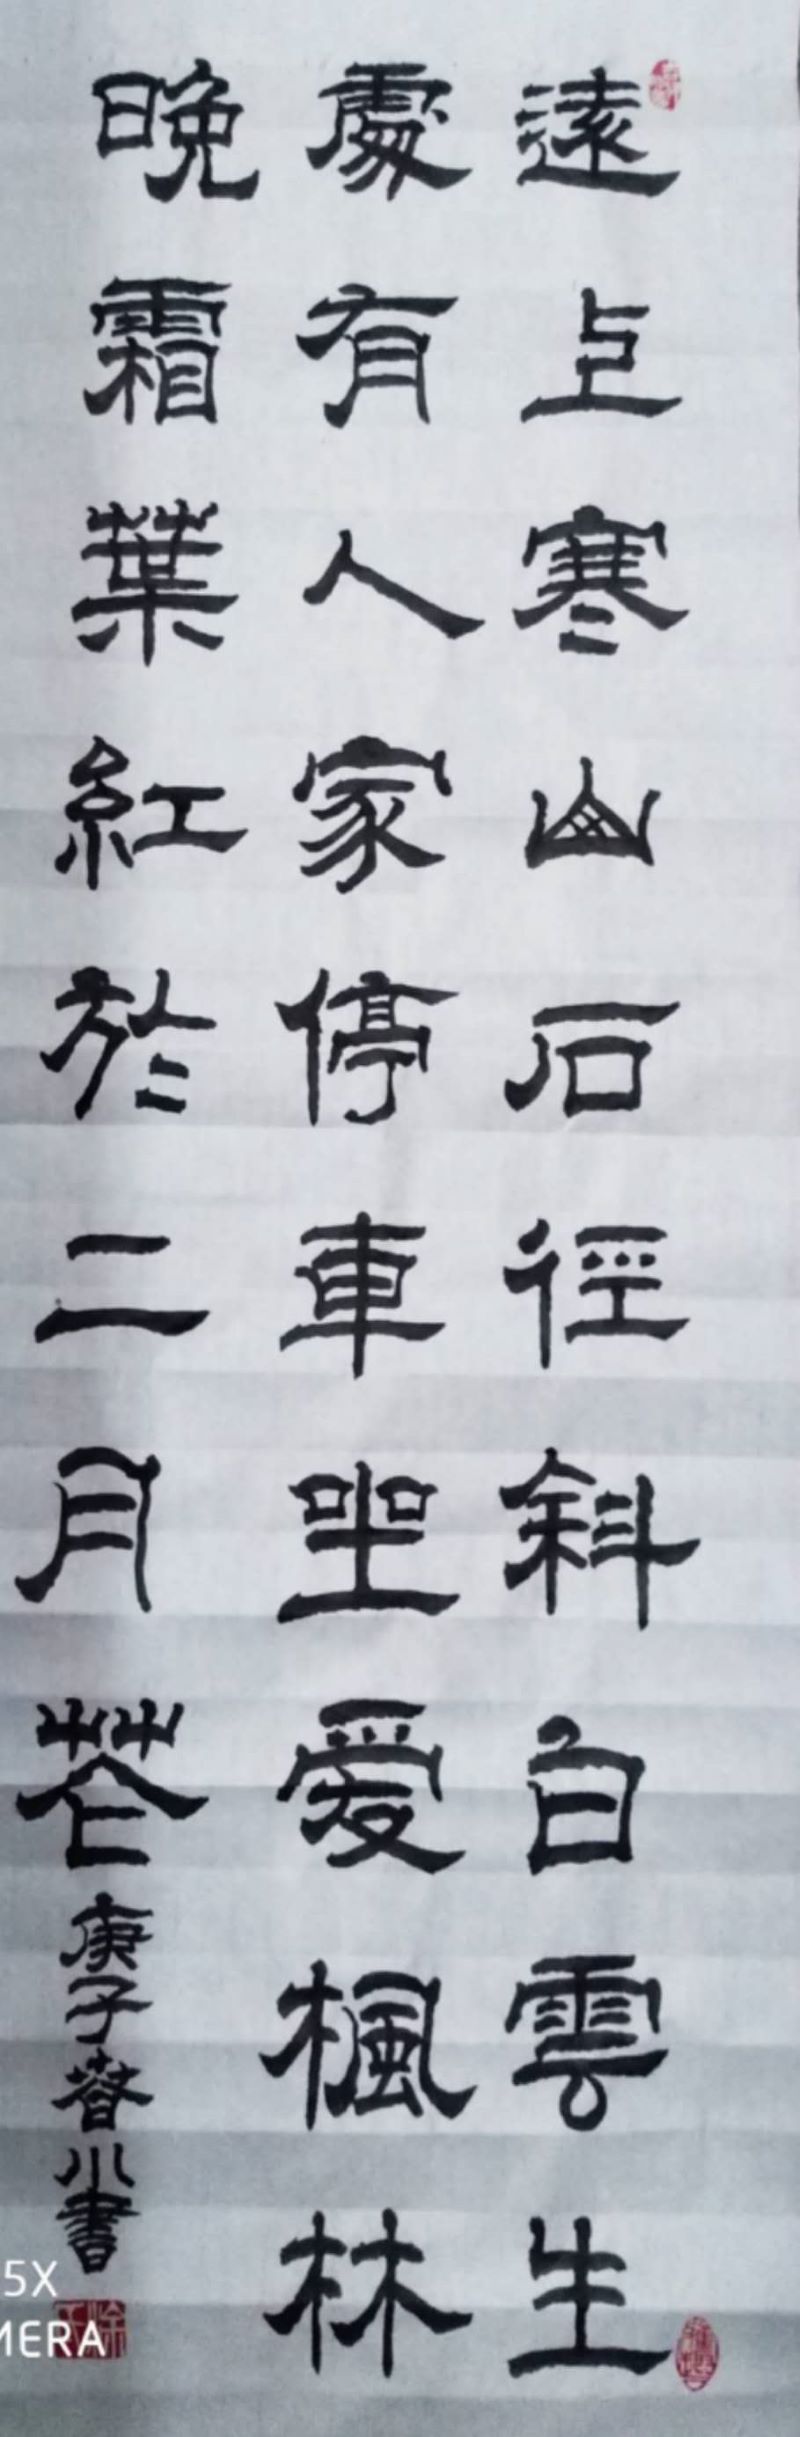 遠上寒山石徑斜白雲生
處有人家停車坐爱楓林
晚霜葉紅於二月花
庚子春書
5X
MERA